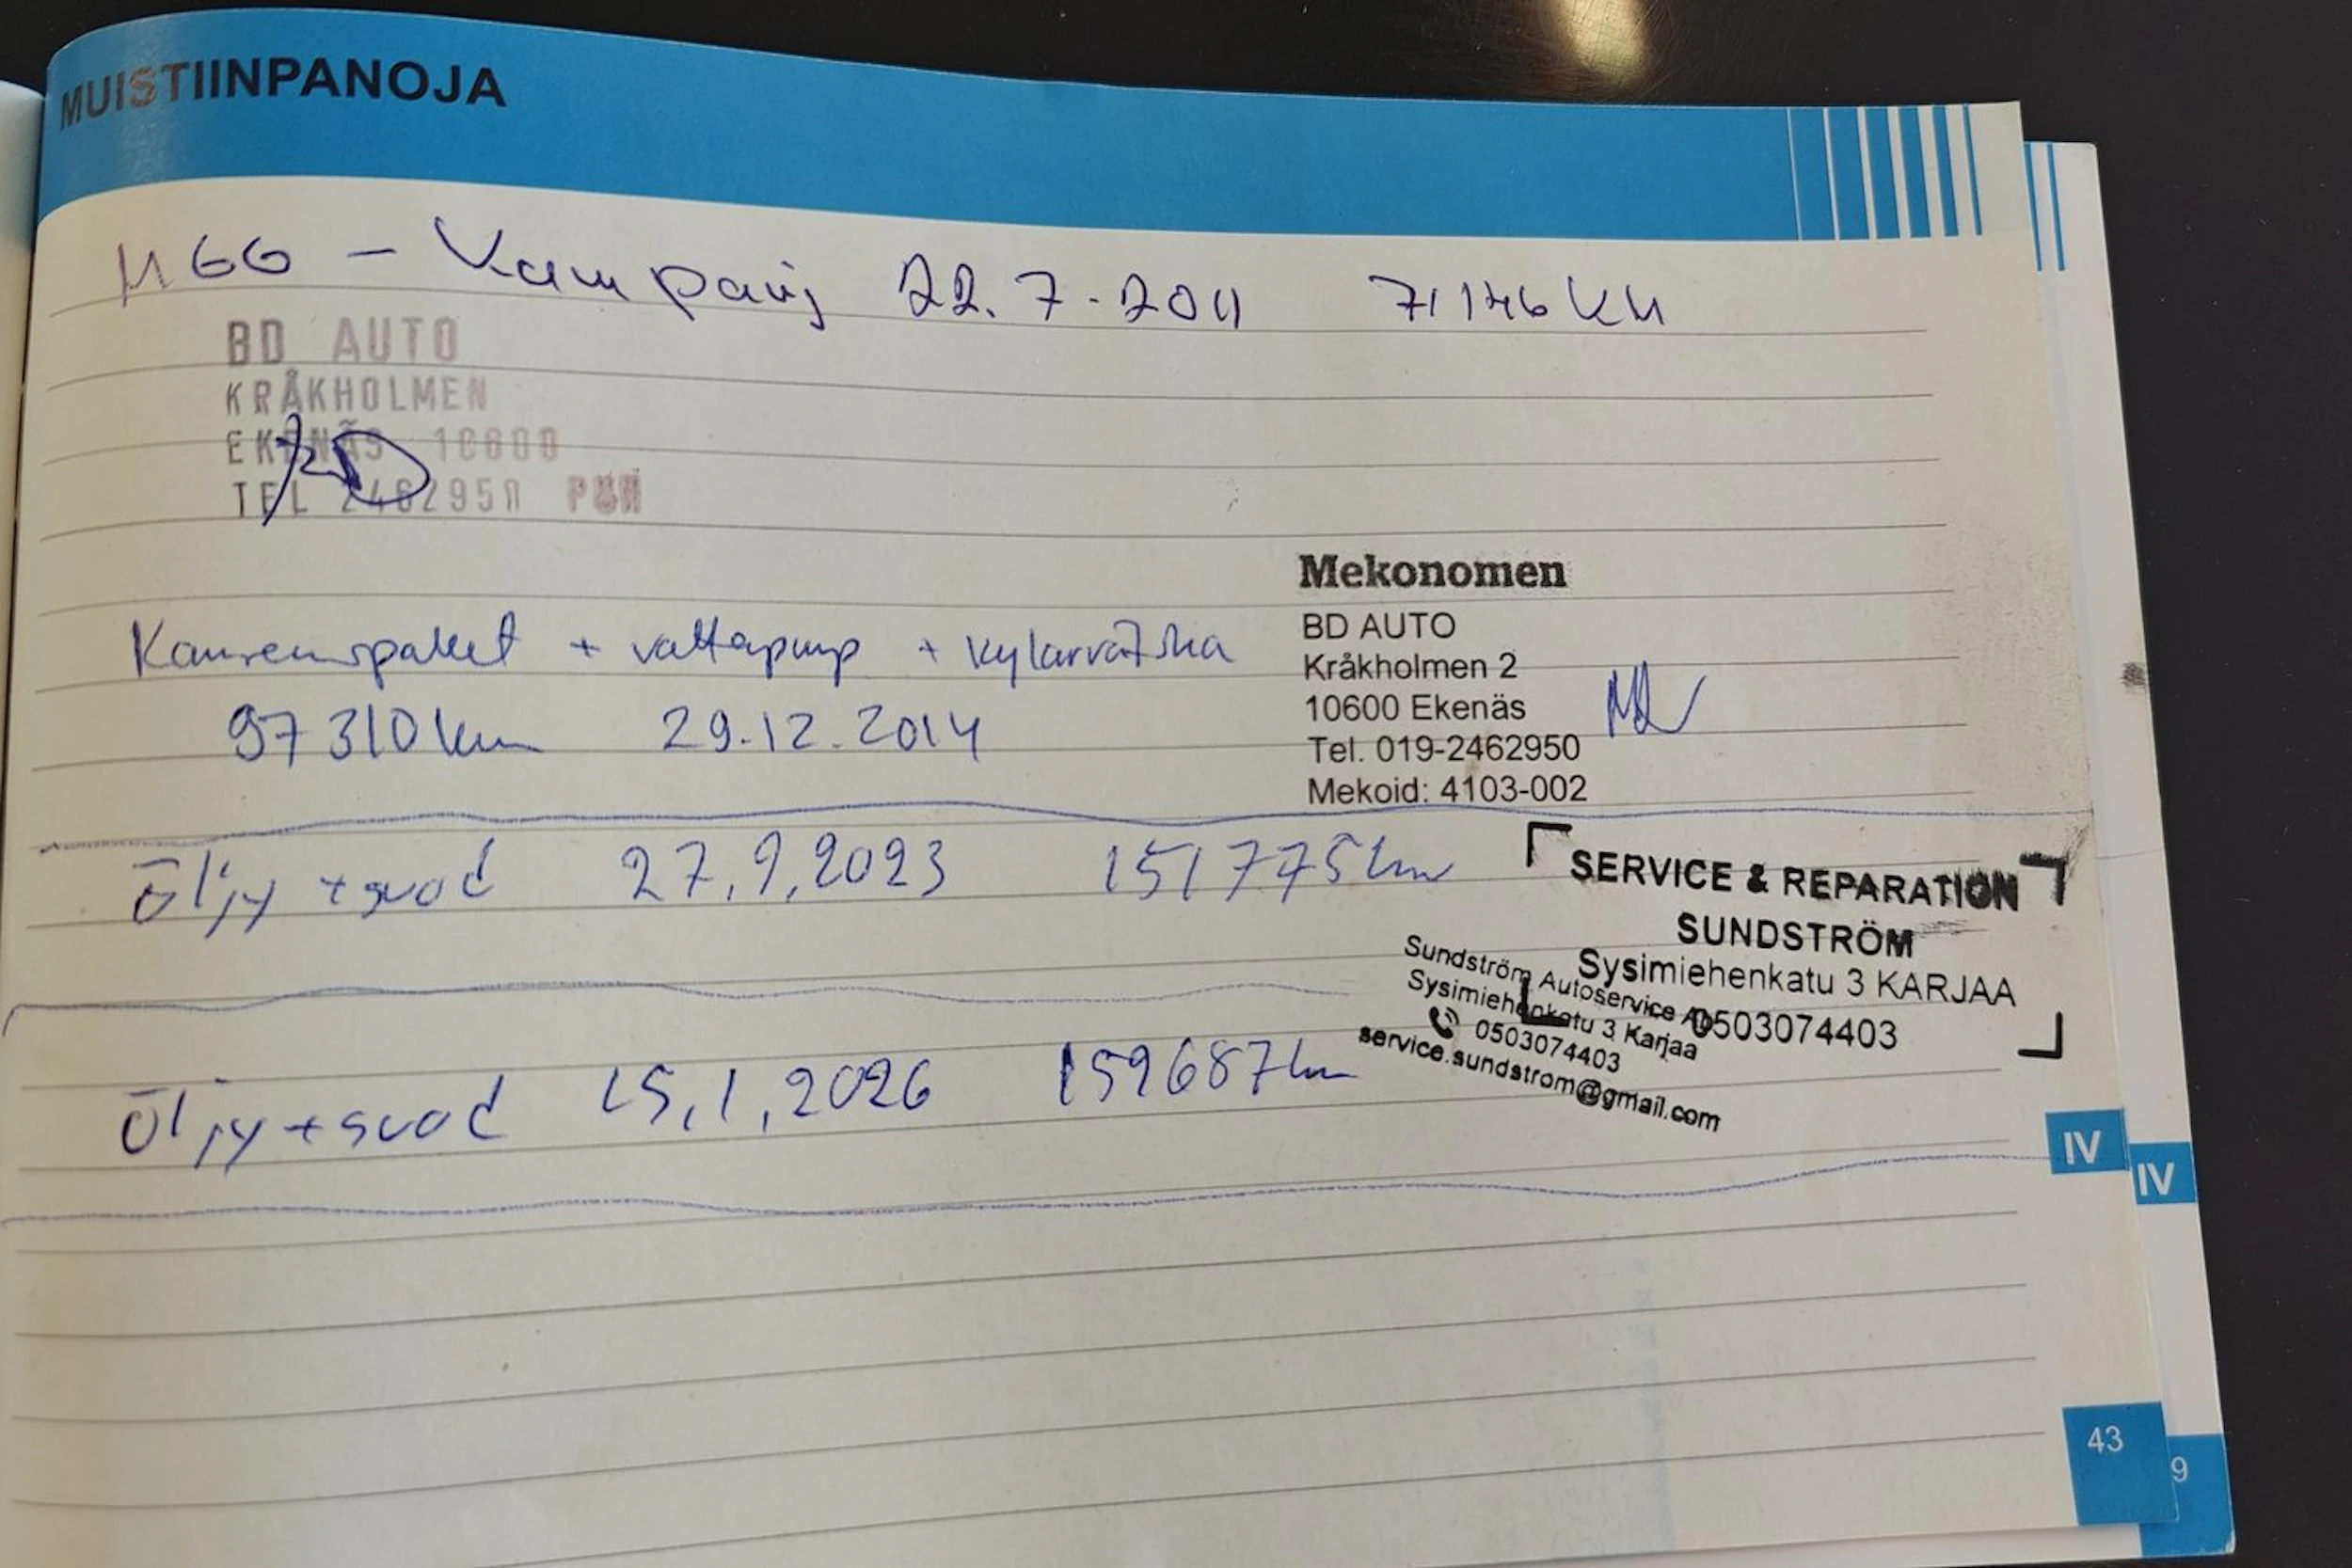 MUISTIINPANOJA
M66 - Kampanj 22.7.2011 71146 KM
BD AUTO
KRÅKHOLMEN
EKENÄS 10600
TEL 2462950 PUH
Mekonomen
BD AUTO
Kråkholmen 2
10600 Ekenäs
Tel. 019-2462950
Mekoid: 4103-002
Kamremspaket + vattapump + kylarvätska
97310 km 29.12.2014
Öljy + suod 27,9,2023 151775 km
SERVICE & REPARATION
SUNDSTRÖM
Sysimiehenkatu 3 KARJAA
0503074403
Sundström Autoservice Ab
Sysimiehenkatu 3 Karjaa
0503074403
service.sundstrom@gmail.com
Öljy + suod 15,1,2026 159687 km
IV
IV
43
9